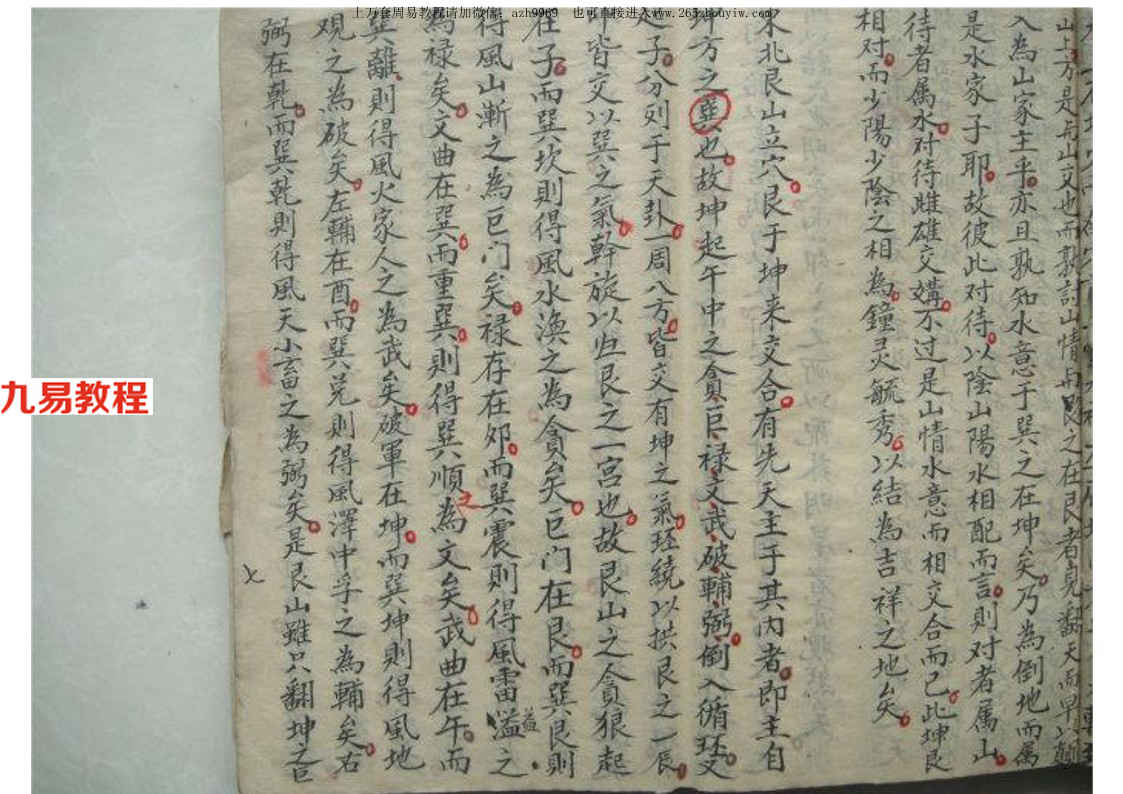 上万套周易教程请加微信：azh9989 也可直接进入www.265zhouyiw.com
九易教程
山方是与山交也而孰討山情与艮之在艮者竟翻天而早以
入為山家主乎亦且孰知水意于巽之在坤矣乃為倒地而属
是水家子耶故彼此对待以陰山陽水相配而言則对者属山
待者属水对待雌雄交媾不过是山情水意而相交合而已此坤艮
相对而少陽少陰之相為鐘灵毓秀以結為吉祥之地矣
东北艮山立穴艮于坤来交合有先天主于其内者即主自
卦方之巽也故坤起午中之貪巨禄文武破輔弼倒入循环交
子分列于天卦一周八方皆交有坤之氣环繞以拱艮之一辰
皆交以巽之氣幹旋以归艮之一宮也故艮山之貪狼起
在子而巽坎則得風水渙之為貪矣巨门在艮而巽艮則
得風山漸之為巨门矣禄存在卯而巽震則得風雷益之
為禄矣文曲在巽而重巽則得巽順之為文矣武曲在午而
巽離則得風火家人之為武矣破軍在坤而巽坤則得風地
观之為破矣左輔在酉而巽兑則得風澤中孚之為輔矣右
弼在乾而巽乾則得風天小畜之為弼矣是艮山雖只翻坤之巨
七